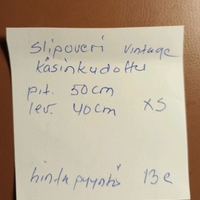 slipoveri vintage
käsinkudottu
pit. 50cm
lev. 40cm XS
hintapyyntö 13e